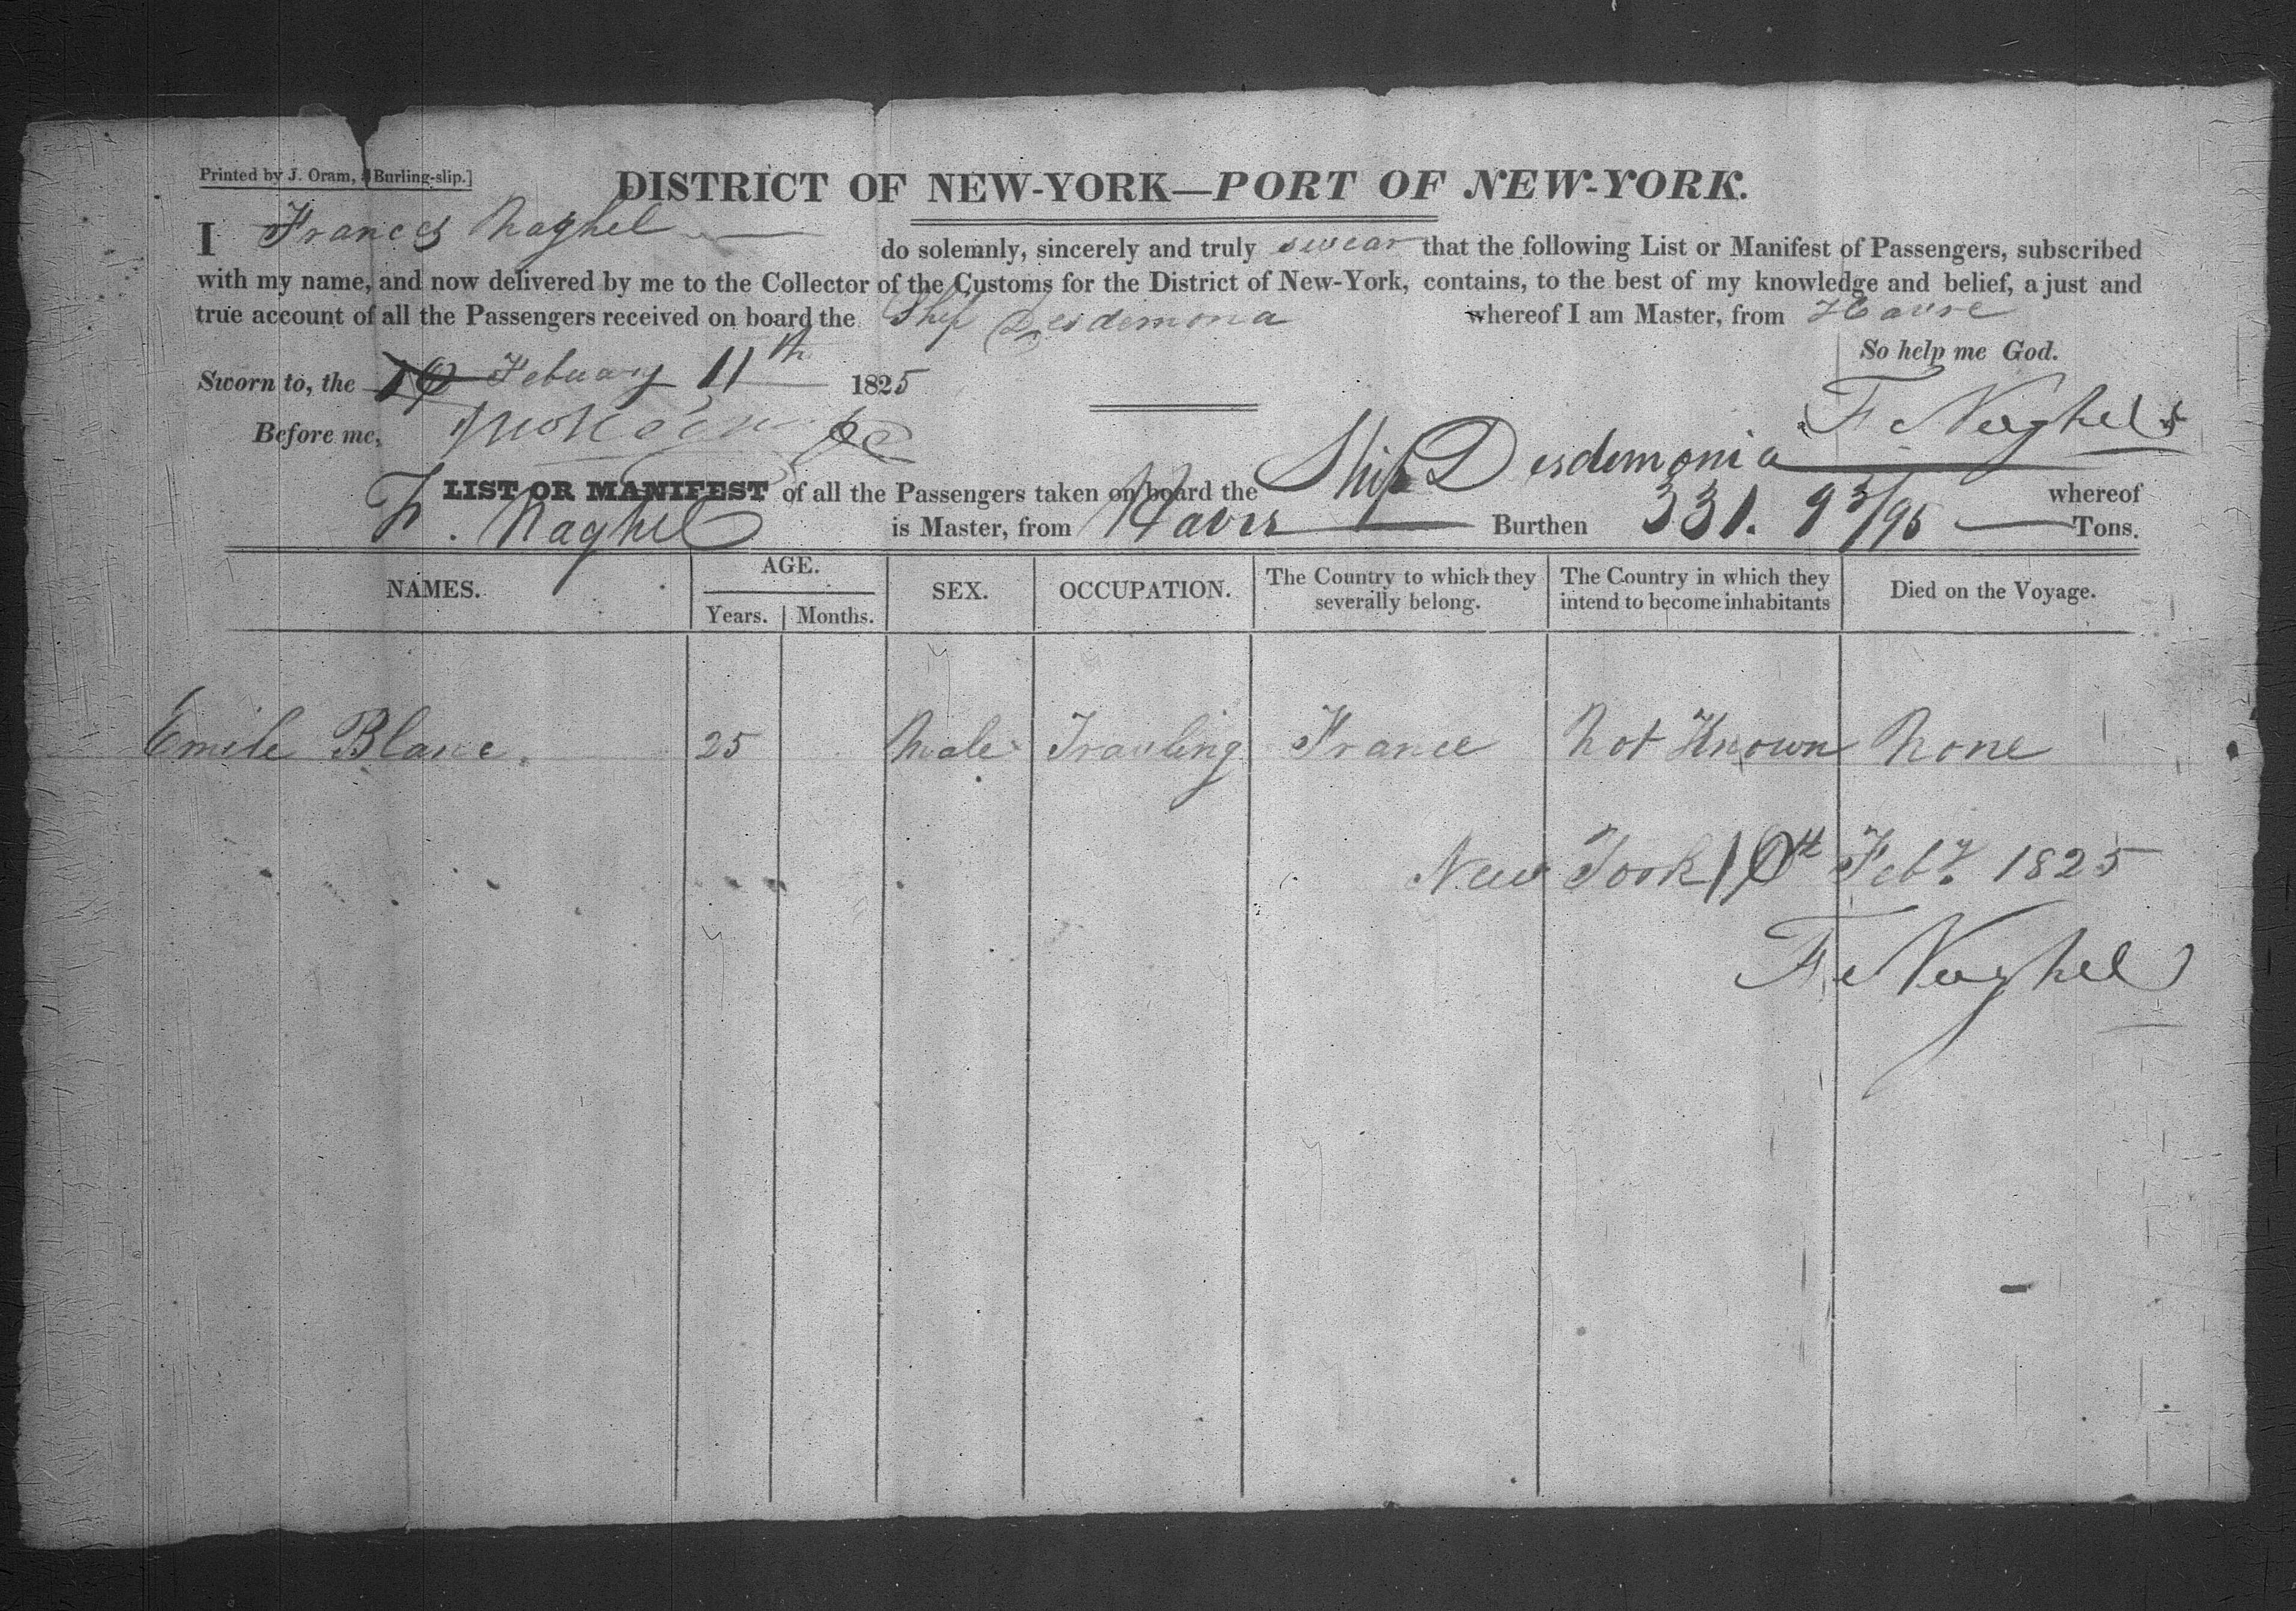 Printed by J. Oram, Burling-slip.]
DISTRICT OF NEW-YORK—PORT OF NEW-YORK.
I Frances Naghel do solemnly, sincerely and truly swear that the following List or Manifest of Passengers, subscribed
with my name, and now delivered by me to the Collector of the Customs for the District of New-York, contains, to the best of my knowledge and belief, a just and
true account of all the Passengers received on board the Ship Desdemona whereof I am Master, from Havre
So help me God.
Sworn to, the 10 Febuary 11th 1825
F Naghel
Before me,
LIST OR MANIFEST of all the Passengers taken on board the Ship Desdemonia whereof
F. Naghel is Master, from Havre Burthen 331. 93/95 Tons.
NAMES. AGE. SEX. OCCUPATION. The Country to which they severally belong. The Country in which they intend to become inhabitants Died on the Voyage.
Years. Months.
Emile Blanc. 25 Male Travling France Not Known None
New York 10th Feby. 1825
F Naghel